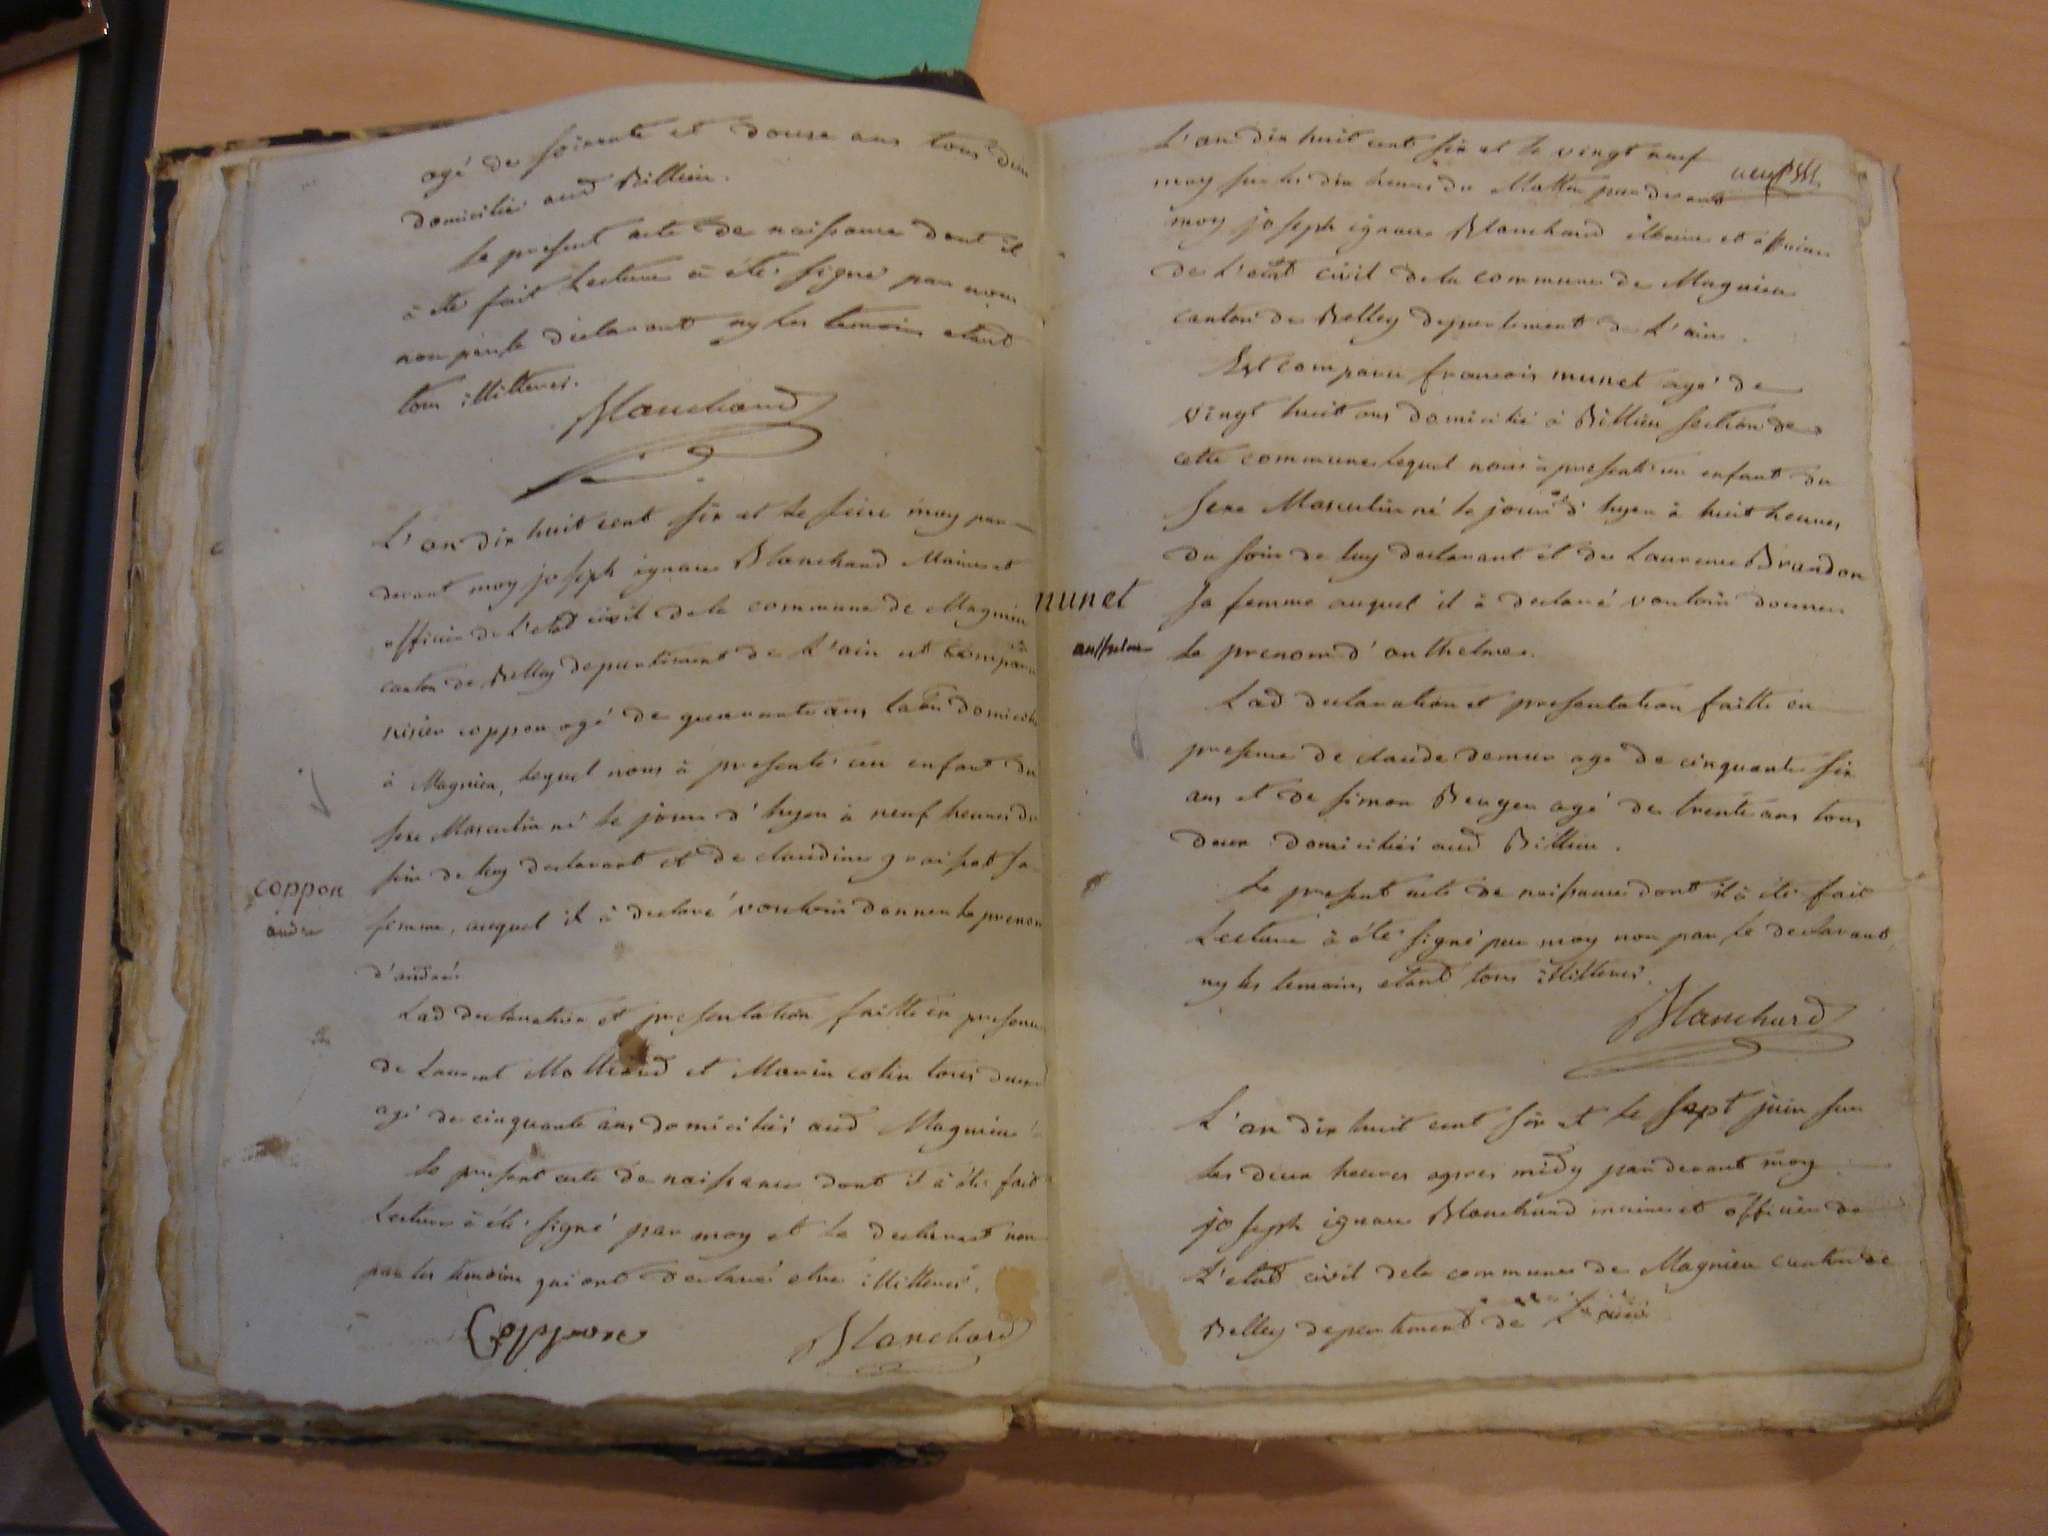 agé de soixante et douse ans tous deux
domiciliés aud Billieu.
Le present acte de naissance dont il
à été fait Lecture à été signé par nous
non par le declarant ny les temoins etant
tous illitteres.
Blanchard
L'an dix huit cent six et le seize may par
devant moy joseph ignace Blanchard Maire et
officier de l'etat civil de la commune de Magnieu
canton de Belley departement de L'ain est comparu
coppon agé de quarante ans domicilié
à Magnieu, lequel nous à presenté un enfant du
sexe Masculin né le jour d'hyer à neuf heures du
soir de luy declarant et de claudine sa
coppon
andre
femme, auquel il à declaré vouloir donner le prenom
d'andré.
Lad declaration et presentation faitte en presence
de Laurent et Marin colin tous deux
agé de cinquante ans domiciliés aud Magnieu
Le present acte de naissance dont il à été fait
Lecture à été signé par moy et le declarant non
par les temoins qui ont declaré etre illitteres.
Coppon Blanchard
L'an dix huit cent six et le vingt neuf
may sur les dix heures du Mattin par devant
moy joseph ignace Blanchard Maire et officier
de L'etat civil de la commune de Magnieu
canton de Belley departement de L'ain.
Est comparu francois munet agé de
vingt huit ans domicilié à Billieu section de
cette commune lequel nous à presenté un enfant du
sexe Masculin né le jour d'hyer à huit heures
du soir de luy declarant et de Laurence Brandon
munet
sa femme auquel il à declaré vouloir donner
anthelme
le prenom d'anthelme.
Lad declaration et presentation faitte en
presence de claude demur agé de cinquante six
ans et de simon Berger agé de trente ans tous
deux domiciliés aud Billieu.
Le present acte de naissance dont il à été fait
Lecture à été signé par moy non par le declarant
ny les temoins etant tous illitteres.
Blanchard
L'an dix huit cent six et le sept juin sur
les deux heures apres midy par devant moy
joseph ignace Blanchard maire et officier de
L'etat civil dela commune de Magnieu canton de
Belley departement de L'ain